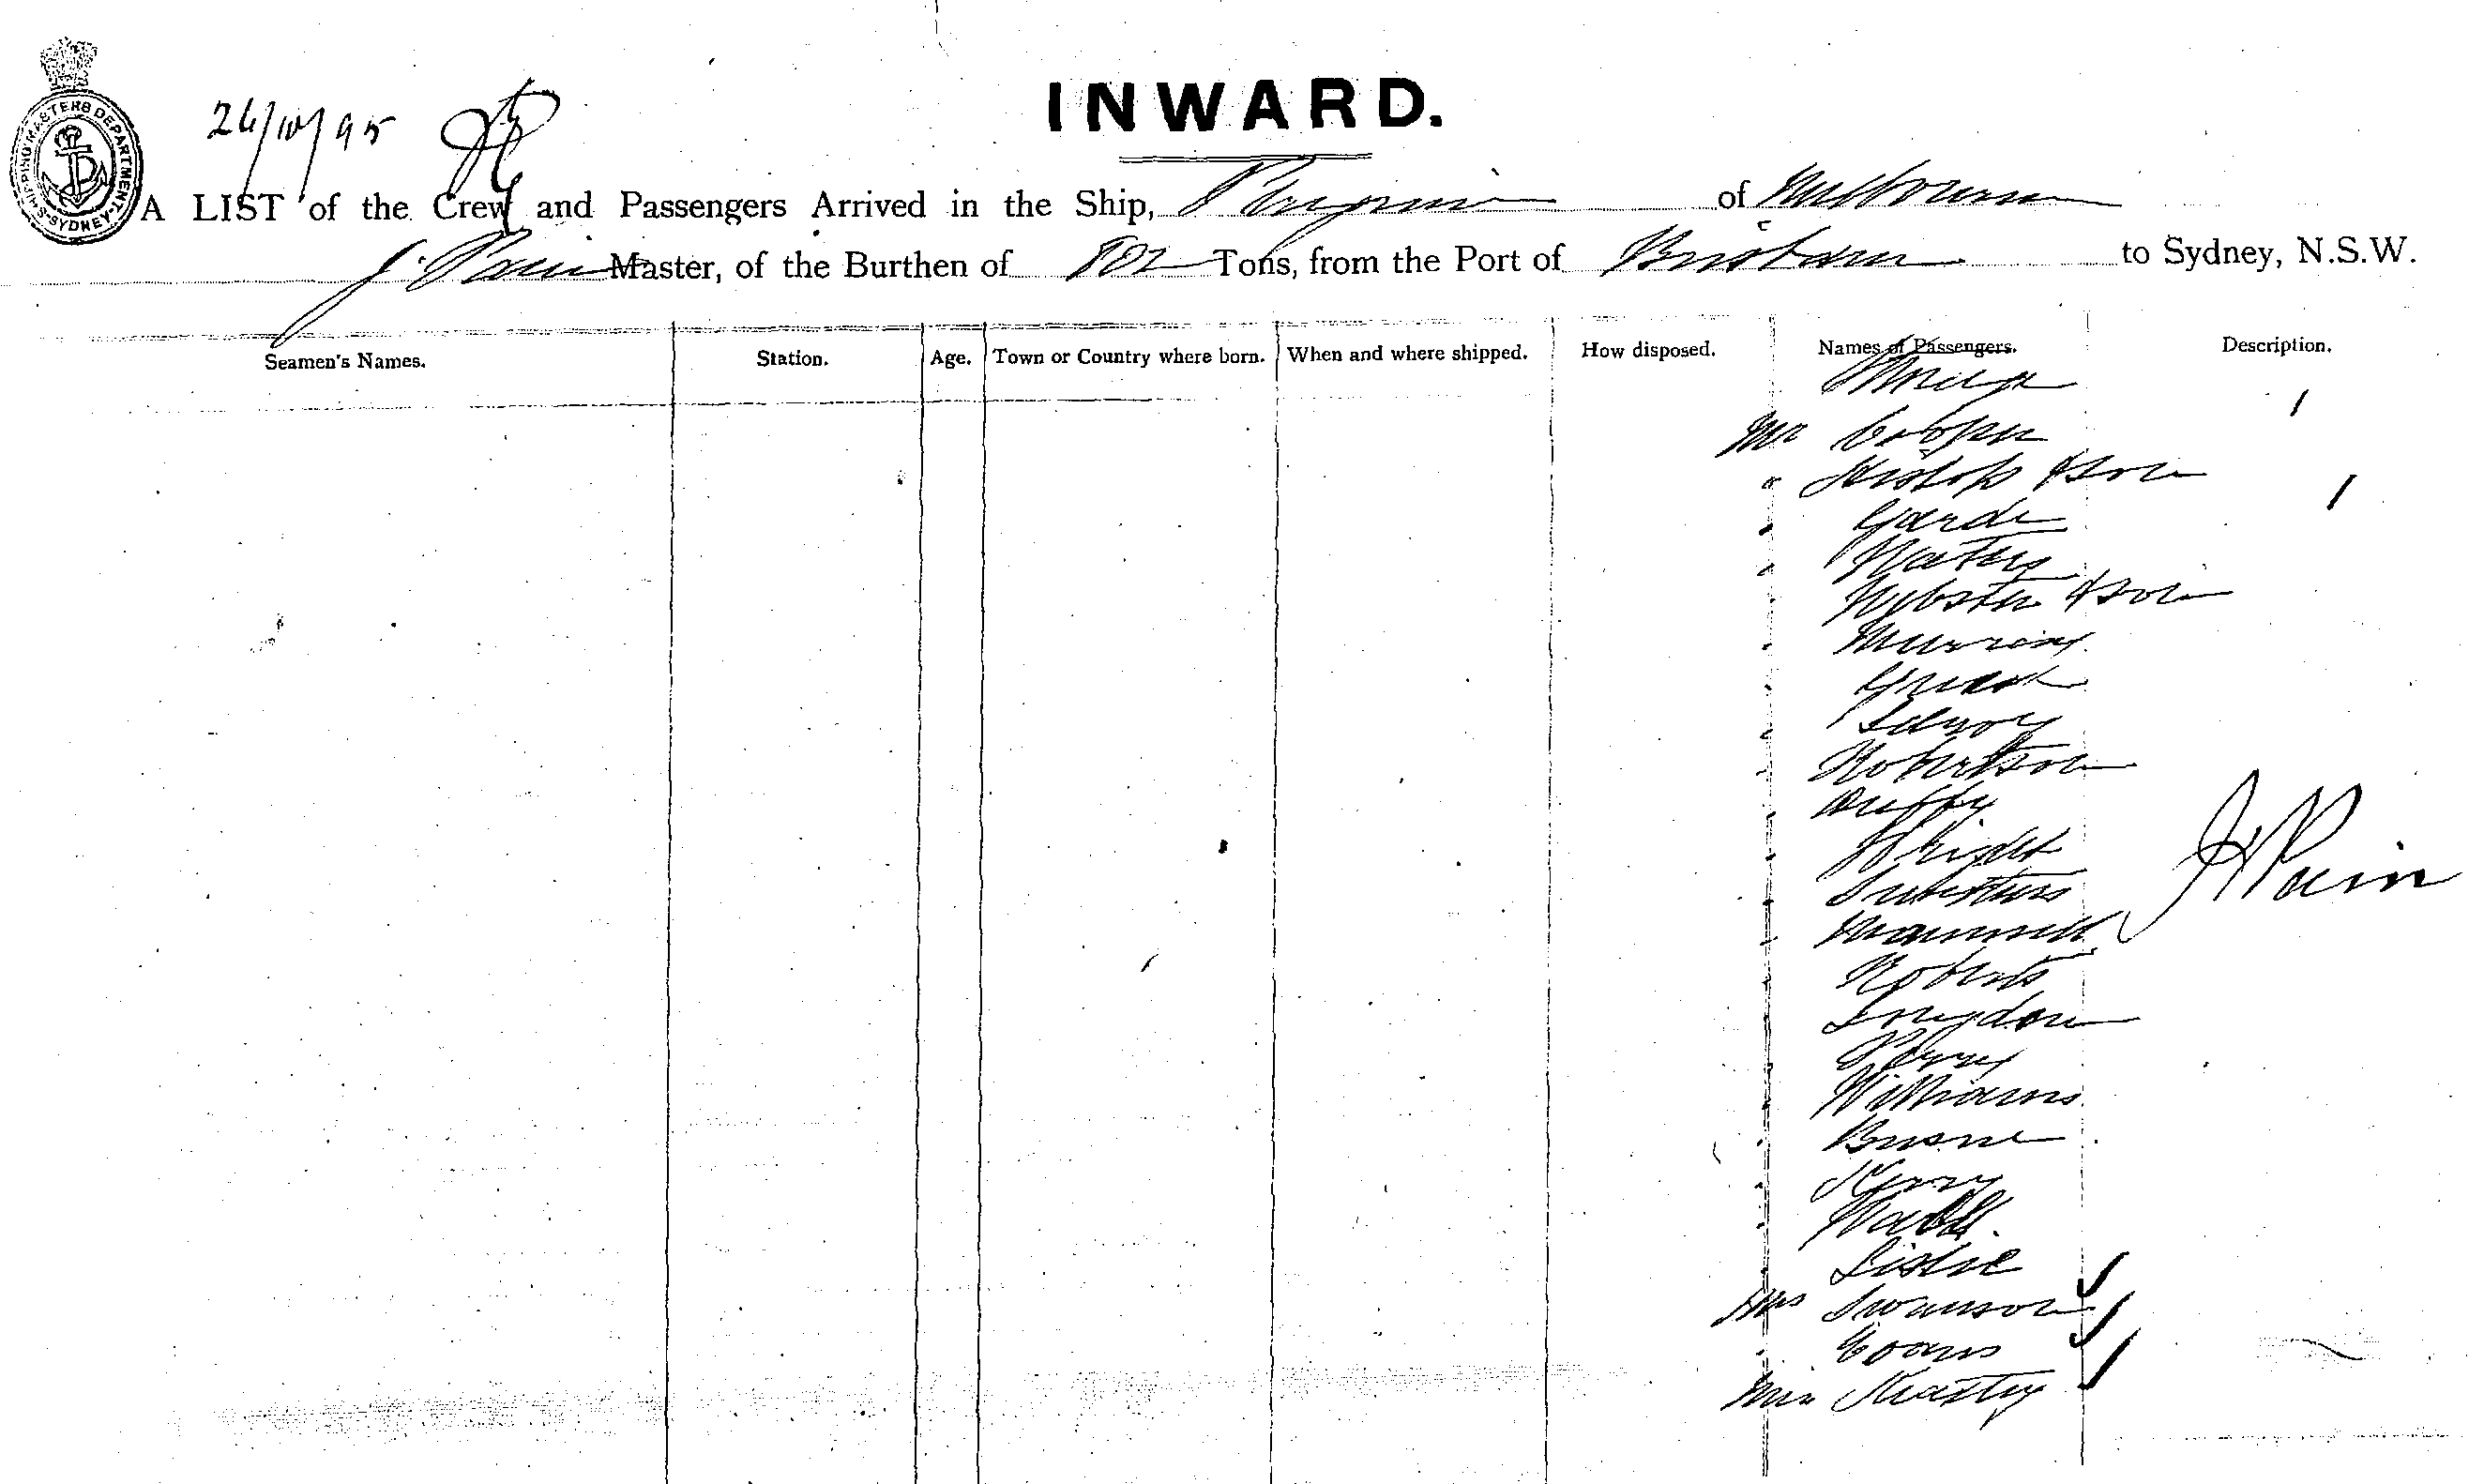 INWARD.
SHIPPING MASTERS DEPARTMENT SYDNEY
26/10/95
A LIST of the Crew and Passengers Arrived in the Ship, of Melbourne
J. Pain Master, of the Burthen of 802 Tons, from the Port of Brisbane to Sydney, N.S.W.
Seamen's Names. Station. Age. Town or Country where born. When and where shipped. How disposed. Names of Passengers. Description.
Mr Cooper
" Hislop & son
Garde
Waters
Webster & son
Murray
Robertson
Duffy
Wright
J Pain
Roberts
Longdon
Perry
Williams
Kerry
Leslie
Mrs Swanson
Evans
Miss